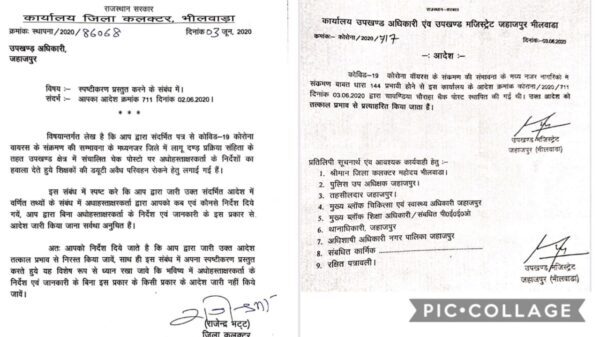 राजस्थान सरकार
कार्यालय जिला कलक्टर, भीलवाड़ा
क्रमांक: स्थापना/2020/86068 दिनांक 03 जून, 2020
उपखण्ड अधिकारी,
जहाजपुर
विषय:- स्पष्टीकरण प्रस्तुत करने के संबंध में।
संदर्भ:- आपका आदेश क्रमांक 711 दिनांक 02.06.2020
* * *
विषयान्तर्गत लेख है कि आप द्वारा संदर्भित पत्र से कोविड-19 कोरोना
वायरस के संक्रमण की सम्भावना के मध्यनजर जिला में लागू दण्ड प्रक्रिया संहिता के
तहत उपखण्ड क्षेत्र में संचालित चेक पोस्टो पर अधोहस्ताक्षरकर्ता के निर्देशों का
हवाला देते हुये शिक्षकों की ड्यूटी अवैध परिवहन रोकने हेतु लगाई गई हैं।
इस संबंध में स्पष्ट करे कि आप द्वारा जारी उक्त संदर्भित आदेश में
वर्णित तथ्यों के संबंध में अधोहस्ताक्षरकर्ता द्वारा आपको कब एवं कौनसे निर्देश दिये
गयें, आप द्वारा बिना अधोहस्ताक्षरकर्ता के निर्देश एवं जानकारी के इस प्रकार से
आदेश जारी किया जाना सर्वथा अनुचित है।
अतः आपको निर्देश दिये जाते है कि आप द्वारा जारी उक्त आदेश
तत्काल प्रभाव से निरस्त किया जावें, साथ ही इस संबंध में अपना स्पष्टीकरण प्रस्तुत
करते हुये यह विशेष रूप से ध्यान रखा जावे कि भविष्य में अधोहस्ताक्षरकर्ता के
निर्देश एवं जानकारी के बिना इस प्रकार के किसी प्रकार के आदेश जारी नहीं किये
जावें।
(राजेन्द्र भट्ट)
जिला कलक्टर
राजस्थान सरकार
कार्यालय उपखण्ड अधिकारी एंव उपखण्ड मजिस्ट्रेट जहाजपुर भीलवाड़ा
क्रमांक:- कोरोना/2020/717 दिनांक:-03.06.2020
-: आदेश :-
कोविड-19 कोरोना वायरस के संक्रमण की संभावना के मध्य नजर नागरिको में
संक्रमण बाबत धारा 144 प्रभावी होने से इस कार्यालय के आदेश क्रमांक कोरोना/2020/711
दिनांक 03.06.2020 द्वारा चौराहा चैक पोस्ट स्थापित की गई थी। उक्त आदेश को
तत्काल प्रभाव से प्रत्याहरित किया जाता हैं।
उपखण्ड मजिस्ट्रेट
जहाजपुर (भीलवाड़ा)
प्रतिलिपी सूचनार्थ एंव आवश्यक कार्यवाही हेतु:-
1. श्रीमान जिला कलक्टर महोदय भीलवाड़ा।
2. पुलिस उप अधीक्षक जहाजपुर।
3. तहसीलदार जहाजपुर।
4. मुख्य ब्लॉक चिकित्सा एवं स्वास्थ्य अधिकारी जहाजपुर
5. मुख्य ब्लॉक शिक्षा अधिकारी/संबधित पी0ई0ई0ओ
6. थानाधिकारी, जहाजपुर
7. अधिशाषी अधिकारी नगर पालिका जहाजपुर
8. संबधित कार्मिक
9. रक्षित पत्रावली।
उपखण्ड मजिस्ट्रेट
जहाजपुर (भीलवाड़ा)
PIC•COLLAGE